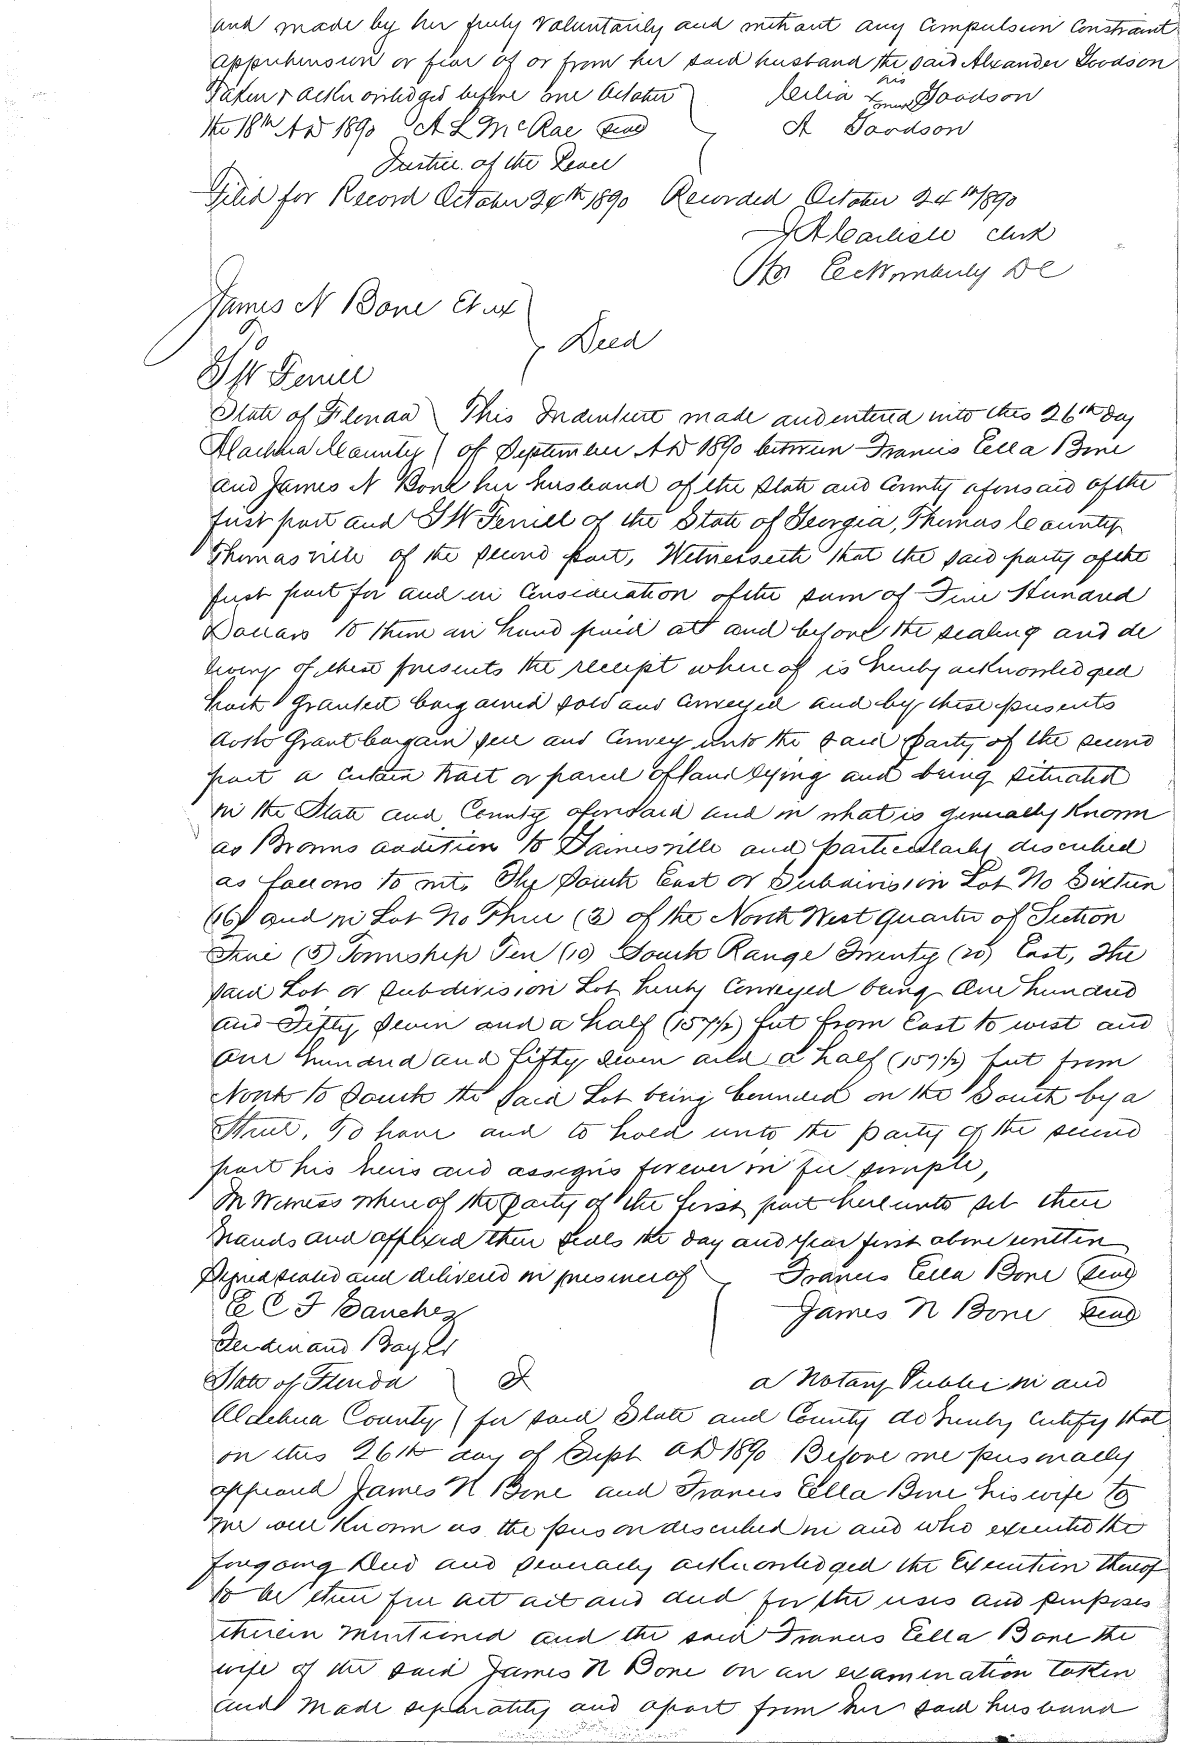 and made by her freely voluntarily and without any Compulsion Constraint
apprehension or fear of or from her said husband the said Alexander Goodson
Taken & acknowledged before me October } Celia his x mark Goodson
the 18th AD 1890 A L McRae seal } A Goodson
Justice of the Peace
Filed for Record October 24th 1890 Recorded October 24th 1890
J A Carlisle Clerk
DC
James N Bone Et ux
To } Deed
State of Florida } This Indenture made and entered into this 26th day
Alachua County } of September AD 1890 between Francis Ella Bone
and James N Bone her husband of the State and County aforesaid of the
first part and of the State of Georgia, Thomas County
Thomasville of the second part, Witnesseth that the said party of the
first part for and in Consideration of the sum of Five Hundred
Dollars to them in hand paid at and before the sealing and de
livery of these presents the receipt where of is hereby acknowledged
hath Granted bargained sold and Conveyed and by these presents
doth Grant bargain sell and Convey unto the said party of the second
part a certain tract or parcel of land lying and being situated
in the State and County aforesaid and in what is generally known
as Browns addition to Gainesville and particularly described
as follows to wit. The South East or Subdivision Lot No Sixteen
(16) and in Lot No Three (3) of the North West Quarter of Section
Five (5) Township Ten (10) South Range Twenty (20) East, The
said Lot or subdivision Lot hereby Conveyed being One hundred
and Fifty Seven and a half (157½) feet from East to west and
One hundred and fifty seven and a half (157½) feet from
North to South the said Lot being bounded on the South by a
Street, To have and to hold unto the party of the second
part his heirs and assigns forever in fee simple,
In Witness where of the party of the first part hereunto set their
hands and affixed their seals the day and year first above written
Signed sealed and delivered in presence of } Francis Ella Bone seal
E C F Sanchez } James N Bone seal
Ferdinand Bayer
State of Florida } I a Notary Public in and
Alachua County } for said State and County do hereby certify that
on this 26th day of Sept AD 1890 Before me personally
appeared James N Bone and Francis Ella Bone his wife to
me well known as the person described in and who executed the
foregoing Deed and severally acknowledged the Execution thereof
to be their free act act and deed for the uses and purposes
therein mentioned and the said Francis Ella Bone the
wife of the said James N Bone on an examination taken
and made separately and apart from her said husband